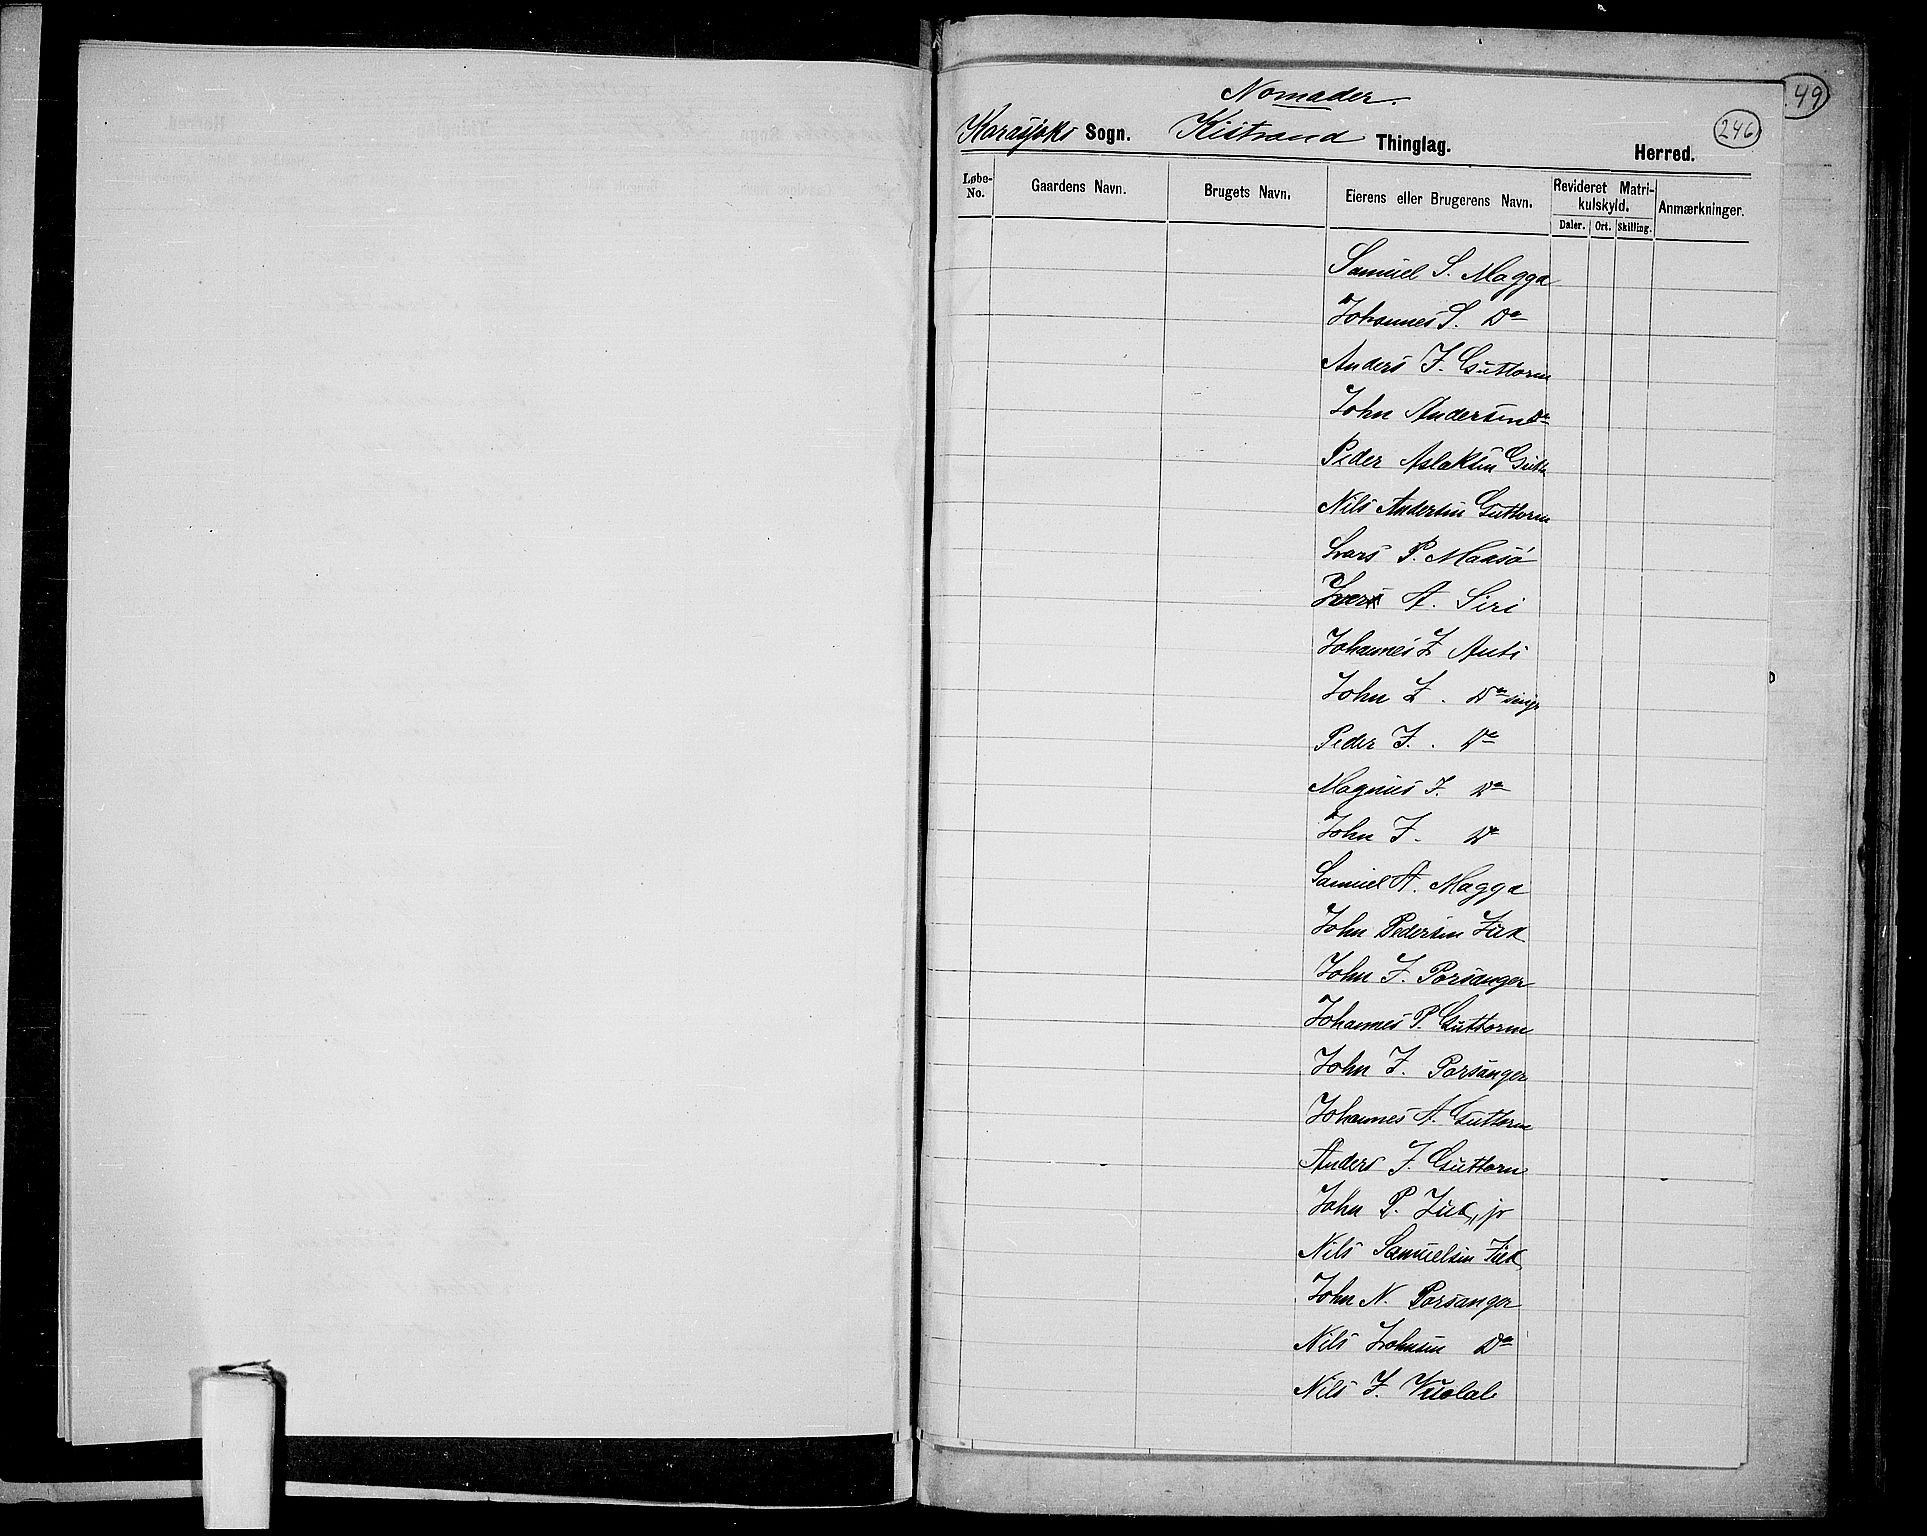 Nomader.
49
Karasjoks Sogn. Kistrand Thinglag. Herred.
246
Løbe-No. Gaardens Navn. Brugets Navn. Eierens eller Brugerens Navn. Revideret Matrikulskyld. Anmærkninger.
Daler. Ort. Skilling.
Samuel S. Magga
Johannes S. Do
Anders J. Guttorm
John Andersen Do
Peder Aslaksen Gutt
Nils Andersen Guttorm
Lars P. Maasø
Iver A. Siri
Johannes J Anti
John J. Do
Peder J. Do
Magnus J. Do
John J. Do
Samuel A. Magga
John Pedersen Juks
John J. Porsanger
Johannes P. Guttorm
John J. Porsanger
Johannes A. Guttorm
Anders J. Guttorm
John P. jr
Nils Samuelsen
John N. Porsanger
Nils Johnsen Do
Nils J. Vuolab